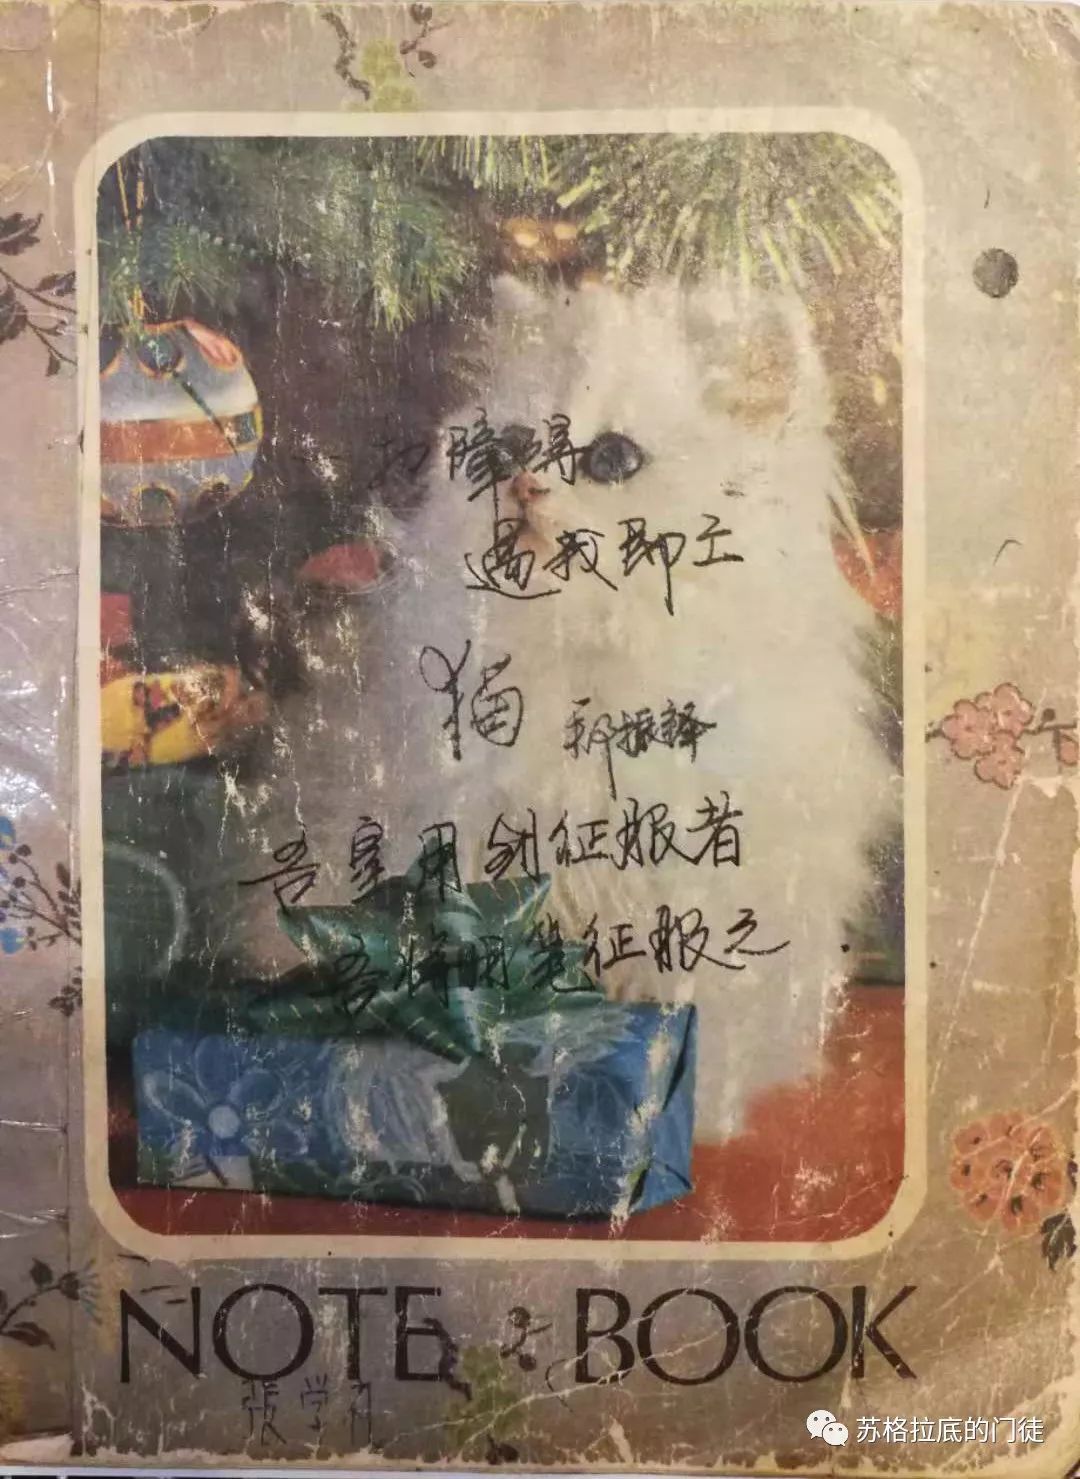 一切障碍
遇我即亡
猫 郑振铎
吾皇用剑征服者
吾将用笔征服之.
NOTE BOOK
張学
苏格拉底的门徒